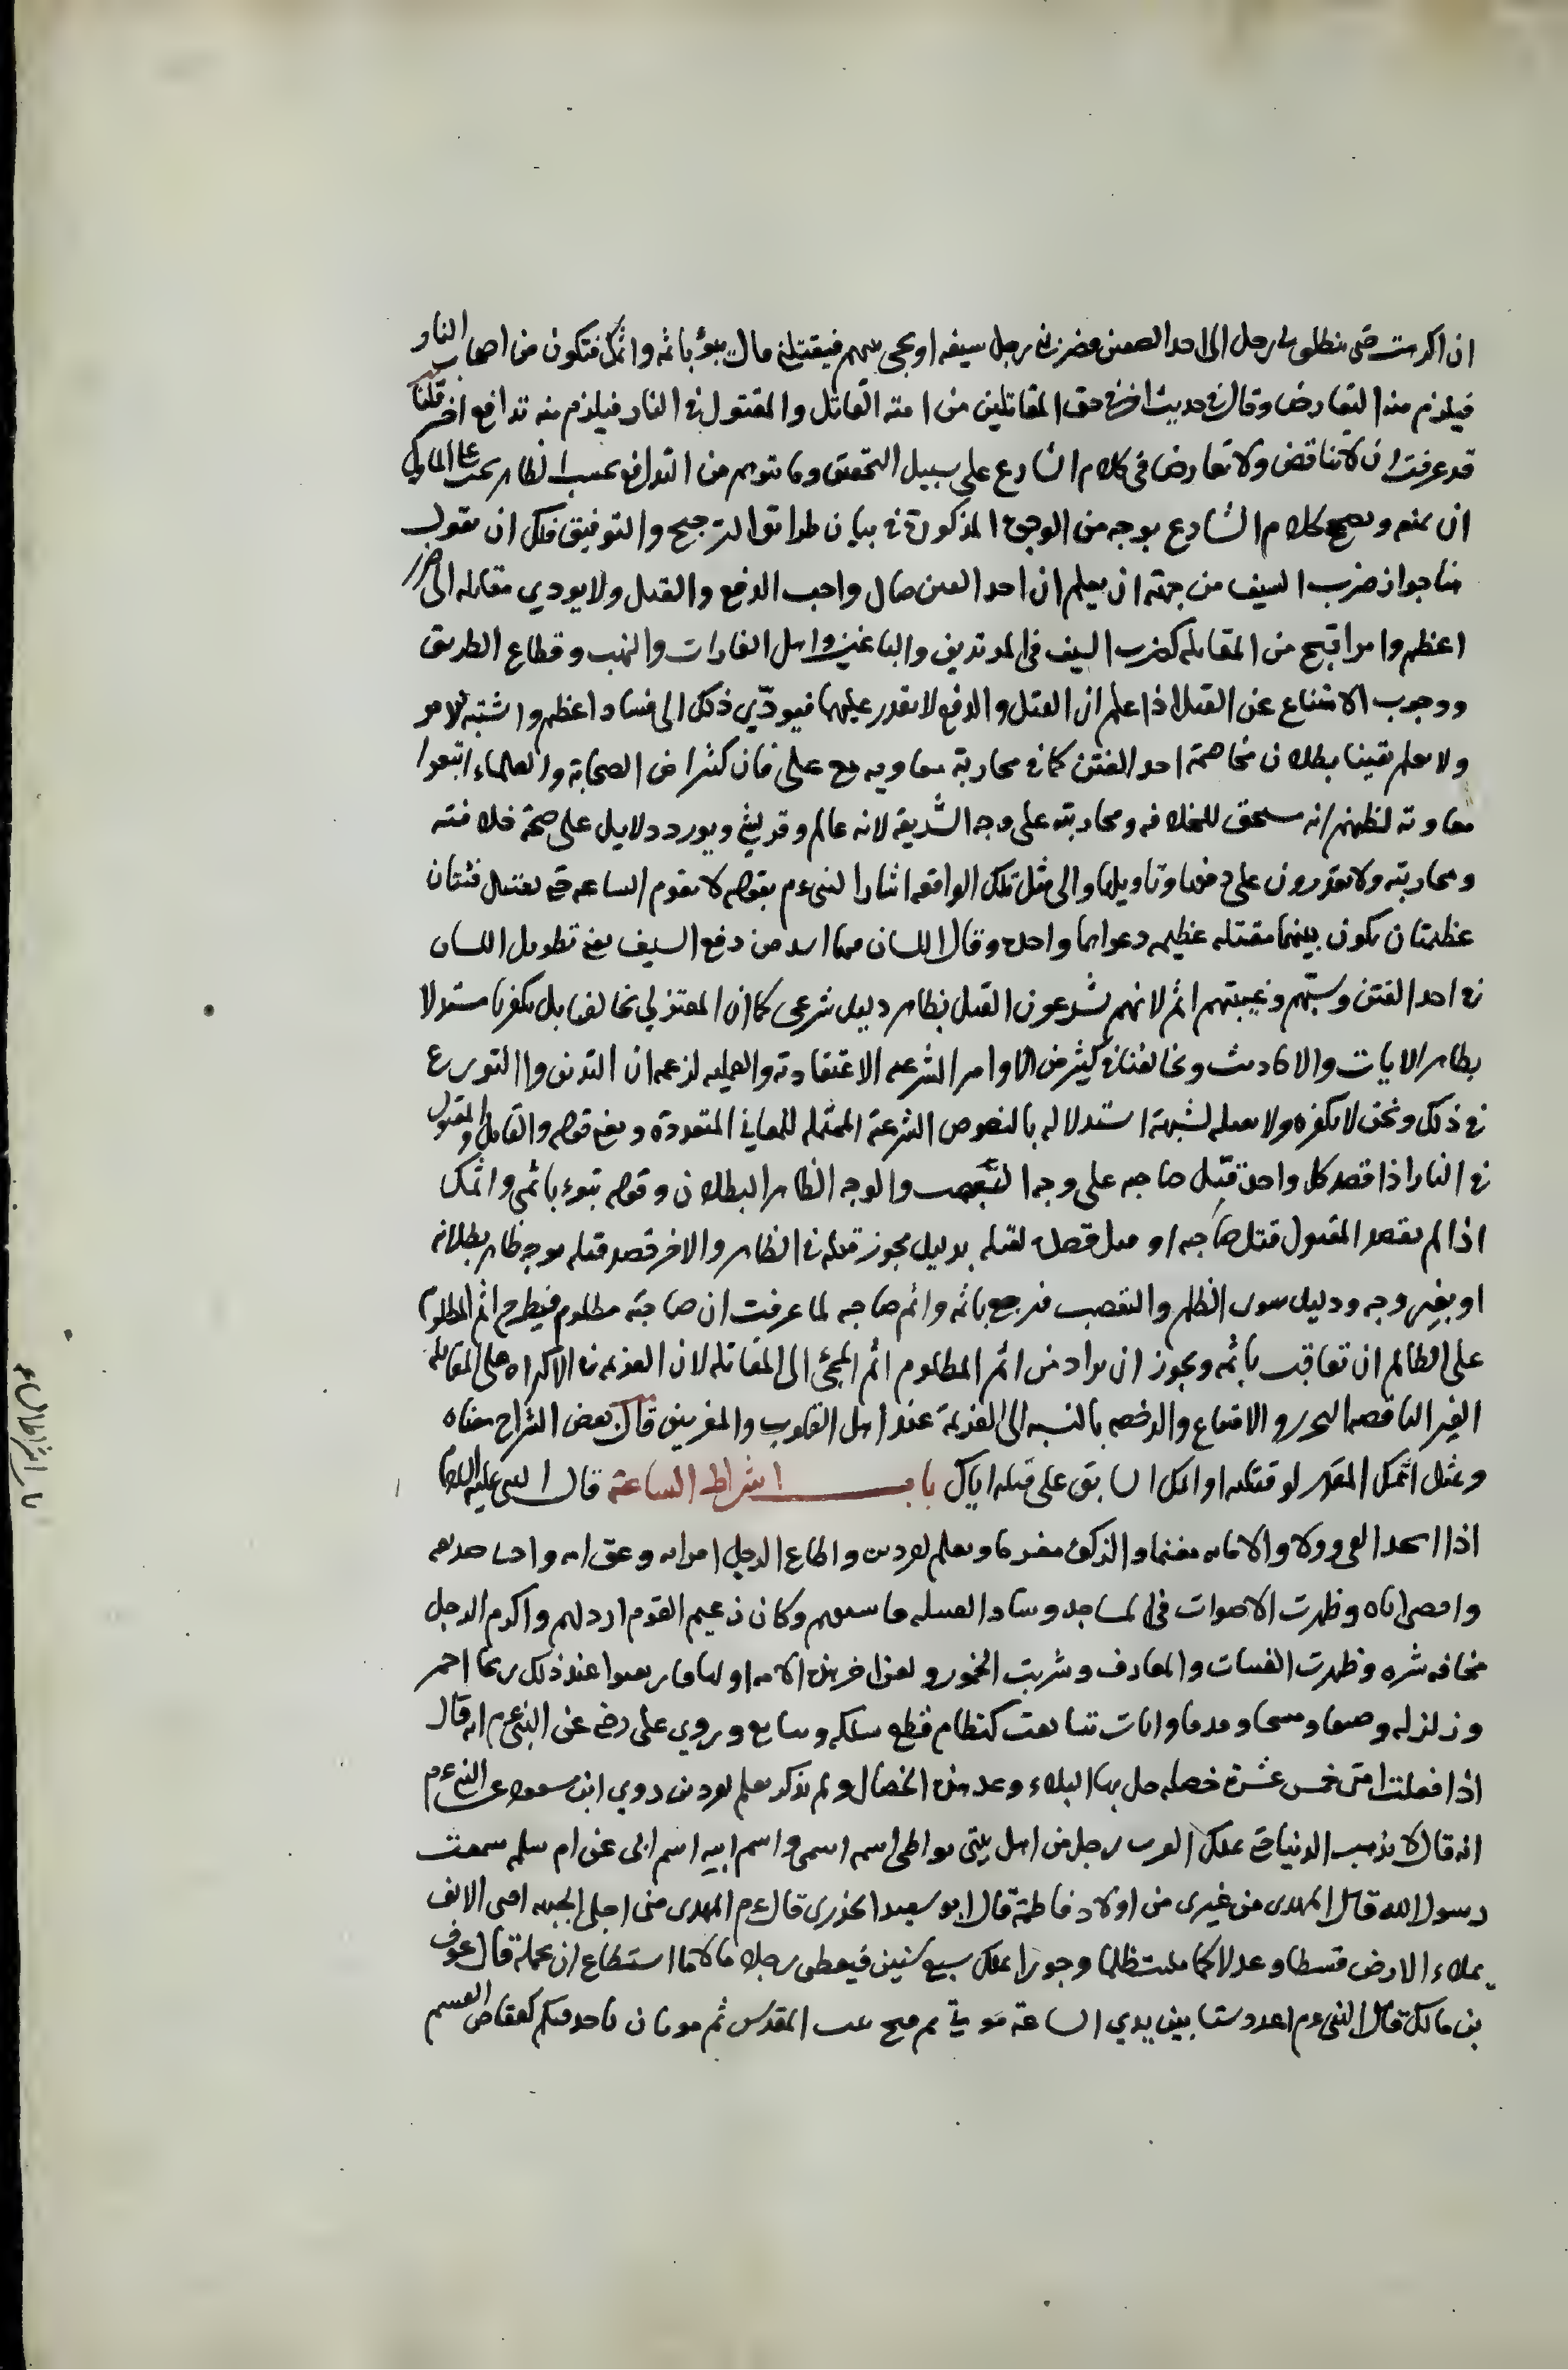 ان اكرهت حتى ينطلق بي رجل الى احد الصفين فضربني رجل بسيفه او يجي سهم فيقتلني قال يبوء باثمه واثمك فتكون من اصحاب النار
فيلزم منه التعارض وقال في حديث اخر في حق المقاتلين من امته القاتل والمقتول في النار فيلزم منه تدافع اخر قلنا
قد عرفت ان لا تناقض ولا تعارض في كلام الشارع على سبيل التحقيق وما توهم من التدافع بحسب الظاهر يجب على الماول
ان يمنعه ويصحح كلام الشارع بوجه من الوجوه المذكورة في بيان طرائق الترجيح والتوفيق فلك ان تقول
هنا جواز ضرب السيف من جهة ان يعلم ان احد الفتين ضال واجب الدفع والقتل ولا يودي مقاتله الى ضرر
اعظم وامر اقبح من المقاتله كضرب السيف في المرتدين والباغين واهل الغارات والنهب وقطاع الطريق
ووجوب الامتناع عن القتل اذا علم ان القتل والدفع لا يقدر عليهما فيودّي ذلك الى فساد اعظم واشتبه الامر
ولا يعلم يقينا بطلان مخاصمة احد الفتين كما في محاربة معاويه مع على فان كثيرا من الصحابة والعلماء اتبعوا
معاوية لظنهم انه مستحق للخلافه ومحاربته على وجه الشريعه لانه عالم وقريشي ويورد دلايل على صحة خلافته
ومحاربته ولا يقدرون على دفعها وتاويلها والى مثل تلك الواقعه اشار النبي ءم بقوله لا تقوم الساعه حتى تقتتل فئتان
عظيمتان يكون بينهما مقتله عظيمه دعواهما واحدة وقال اللسان فيها اشد من وقع السيف يعني تطويل اللسان
في احد الفتين وسبّهم وغيبتهم اثم لانهم يشرعون القتل بظاهر دليل شرعى كما ان المعتزلي يخالفنا بل يكفرنا مستدلا
بظاهر الايات والاحاديث ويخالفنا في كثير من الاوامر الشرعيه الاعتقادية والعمليه لزعمه ان التدين والتورع
في ذلك ونحن لا نكفره ولا نقتله لشبهة استدلاله بالنصوص الشرعية المحتمله للمعاني المتعددة ومعنى قوله والقاتل والمقتول
في النار اذا قصد كل واحد قتل صاحبه على وجه التعصب والوجه الظاهر البطلان وقوله تبوء باثمي واثمك
اذا لم يقصد المقتول قتل صاحبه او قصد لقتله بدليل يجوز قتله في الظاهر والاخر قصد قتله بوجه ظاهر بطلانه
او بغير وجه ودليل سوى الظلم والتعصب فيرجع باثمه واثم صاحبه لما عرفت ان صاحبه مظلوم فيطرح اثم المظلوم
على الظالم ان تعاقب باثمه ويجوز ان يراد من اثم المظلوم اثم المجئ الى المقاتله لان العزيمه في الاكراه على المقاتلة
الغير الناقصه التحرز والامتناع والرخصه بالنسبه الى العزيمة عند اهل القلوب والمقربين قال بعض الشراح معناه
ومثل اثمك المقدر لو قتلته او اثمك السابق على قتله اياك باب اشراط الساعة قال النبي عليه السلام
اذا اتخذ الفي دولا والامانه مغنما والزكوة مغرما وتعلم لغير دين واطاع الرجل امراته وعق امه وادنى صديقه
واقصى اباه وظهرت الاصوات في المساجد وساد القبيله فاسقهم وكان زعيم القوم ارذلهم واكرم الرجل
مخافه شره وظهرت القينات والمعازف وشربت الخمور ولعن اخر هذه الامه اولها فارتقبوا عند ذلك ريحا احمر
وزلزله وخسفا ومسخا وقذفا وايات تتابعت كنظام قطع سلكه وتتابع وروي على رضي عن النبي ءم انه قال
اذا فعلت امتى خمس عشرة خصله حل بها البلاء وعد هذه الخصال ولم يذكر تعلم لغير دين وروي ابن مسعود عن النبي ءم
انه قال لا تذهب الدنيا حتى يملك العرب رجل من اهل بيتي يواطى اسمه اسمى واسم ابيه اسم ابى عن ام سلمه سمعت
رسول الله قال المهدى من عترتى من اولاد فاطمة قال ابو سعيد الخدرى قال ءم المهدى منى اجلى الجبهه اقنى الانف
يملاء الارض قسطا وعدلا كما ملئت ظلما وجورا يملك سبع سنين فيعطى رجلا مالا ما استطاع ان يحمله قال عوف
بن مالك قال النبي ءم اعدد ستا بين يدي الساعة موتي ثم فتح بيت المقدس ثم موتان ياخذ فيكم كعقاص الغنم